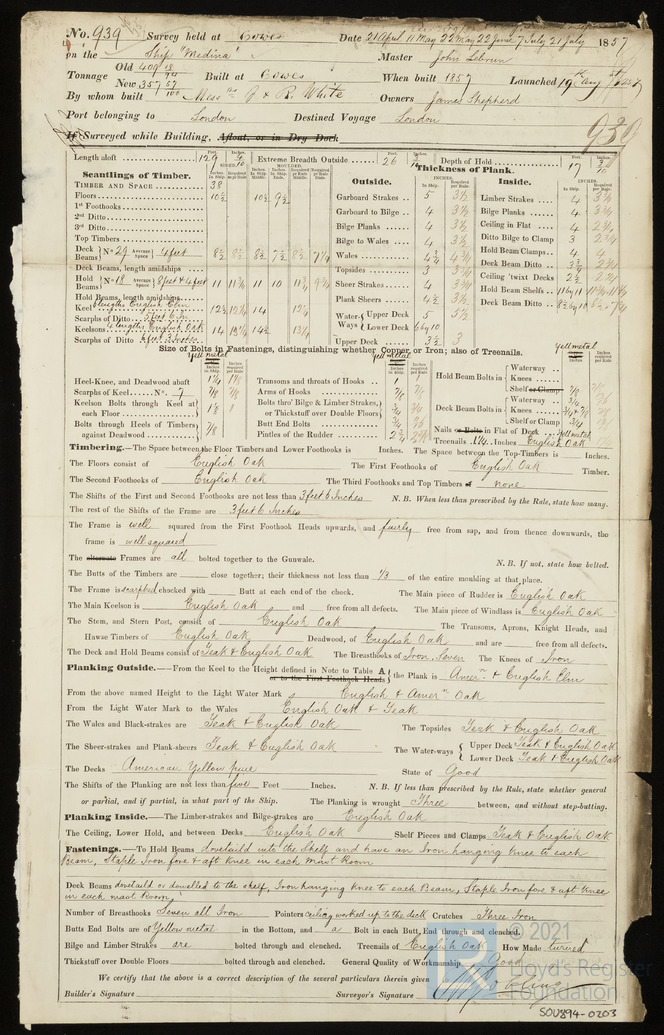 No. 939 Survey held at Cowes Date 21 April 11 May 22 May 22 June 7 July 21 July 1857
on the Ship "Medina" Master John Lebrun
Tonnage Old 409 18/94 New 357 57/100 Built at Cowes When built 1857 Launched 19th Augst 1857
By whom built Messrs J & R. White Owners James Shepherd
Port belonging to London Destined Voyage London
If Surveyed while Building, Afloat, or in Dry Dock 939
Length aloft 129 Extreme Breadth Outside 26 Depth of Hold 17
Scantlings of Timber. Thickness of Plank.
Outside. Inside.
TIMBER AND SPACE 38
Floors 10½ 10½ 9½
1st Foothooks
2nd Ditto
3rd Ditto
Top Timbers
Deck Beams No. 29 Average Space 4 feet 8½ 8½ 8½ 7½ 8½ 7¼
Deck Beams, length amidships
Hold Beams No. 18 Average Space 8 feet & 4 feet 11
Hold Beams, length amidships
Keel 6 lengths English Elm 12½ 14
Scarphs of Ditto
Keelsons 4 lengths English Oak 14
Scarphs of Ditto
Garboard Strakes 5 3½
Garboard to Bilge 4 3½
Bilge Planks 4 3½
Bilge to Wales 4 3½
Wales 4¾ 4¾
Topsides 3
Sheer Strakes 4 3½
Plank Sheers 4½ 3½
Water-Ways Upper Deck 5 5½
Lower Deck 6 by 10
Upper Deck 3½ 3
Limber Strakes 4 3½
Bilge Planks 4 3½
Ceiling in Flat 4 2¾
Ditto Bilge to Clamp 3 2¾
Hold Beam Clamps 4
Deck Beam Ditto
Ceiling 'twixt Decks 2½
Hold Beam Shelfs 11 by 11
Deck Beam Ditto 8½ by 10
Size of Bolts in Fastenings, distinguishing whether Copper or Iron; also of Treenails.
yellmetal
Heel-Knee, and Deadwood abaft
Scarphs of Keel No. 7 7/8 7/8
Keelson Bolts through Keel at each Floor
Bolts through Heels of Timbers against Deadwood 7/8
Transoms and throats of Hooks 1
Arms of Hooks 7/8
Bolts thro' Bilge & Limber Strakes, or Thickstuff over Double Floors
Butt End Bolts 3/4
Pintles of the Rudder
Hold Beam Bolts in Waterway
Knees
Shelf or Clamp 7/8
Deck Beam Bolts in Waterway 3/4
Knees
Shelf or Clamp 3/4
Nails or Bolts in Flat of Deck Yellmetal
Treenails 1¼ Inches English Oak
Timbering.—The Space between the Floor Timbers and Lower Foothooks is Inches. The Space between the Top-Timbers is Inches.
The Floors consist of English Oak The First Foothooks of English Oak Timber.
The Second Foothooks of English Oak The Third Foothooks and Top Timbers of none
The Shifts of the First and Second Foothooks are not less than 3 feet 6 Inches N. B. When less than prescribed by the Rule, state how many.
The rest of the Shifts of the Frame are 3 feet 6 Inches
The Frame is well squared from the First Foothook Heads upwards, and fairly free from sap, and from thence downwards, the
frame is well squared
The alternate Frames are all bolted together to the Gunwale. N. B. If not, state how bolted.
The Butts of the Timbers are close together; their thickness not less than 1/3 of the entire moulding at that place.
The Frame is scarphed chocked with Butt at each end of the chock. The Main piece of Rudder is English Oak
The Main Keelson is English Oak and free from all defects. The Main piece of Windlass is English Oak
The Stem, and Stern Post, consist of English Oak The Transoms, Aprons, Knight Heads, and
Hawse Timbers of English Oak Deadwood, of English Oak and are free from all defects.
The Deck and Hold Beams consist of Teak & English Oak The Breasthooks of Iron, Seven The Knees of Iron
Planking Outside.—From the Keel to the Height defined in Note to Table A, or to the First Foothook Heads the Plank is Amern & English Elm
From the above named Height to the Light Water Mark English & Amern Oak
From the Light Water Mark to the Wales English Oak & Teak
The Wales and Black-strakes are Teak & English Oak The Topsides Teak & English Oak
The Sheer-strakes and Plank-sheers Teak & English Oak The Water-ways Upper Deck Teak & English Oak
Lower Deck Teak & English Oak
The Decks American Yellow pine State of Good
The Shifts of the Planking are not less than five Feet Inches. N. B. If less than prescribed by the Rule, state whether general
or partial, and if partial, in what part of the Ship. The Planking is wrought Three between, and without step-butting.
Planking Inside.—The Limber-strakes and Bilge-strakes are English Oak
The Ceiling, Lower Hold, and between Decks English Oak Shelf Pieces and Clamps Teak & English Oak
Fastenings.—To Hold Beams dovetaild into the Shelf and have an Iron hanging knee to each
Beam, Staple Iron fore & aft knee in each Mast Room
Deck Beams dovetaild or dowelled to the shelf, Iron hanging knee to each Beam, Staple Iron fore & aft knee
in each mast Room
Number of Breasthooks Seven all Iron Pointers ceiling worked up to the deck Crutches Three Iron
Butts End Bolts are of Yellow metal in the Bottom, and a Bolt in each Butt End through and clenched.
Bilge and Limber Strakes are bolted through and clenched. Treenails of English Oak How Made turned
Thickstuff over Double Floors bolted through and clenched. General Quality of Workmanship Good
We certify that the above is a correct description of the several particulars therein given
Builder's Signature Surveyor's Signature
© 2021
Lloyd's Register
Foundation
SOU894-0203